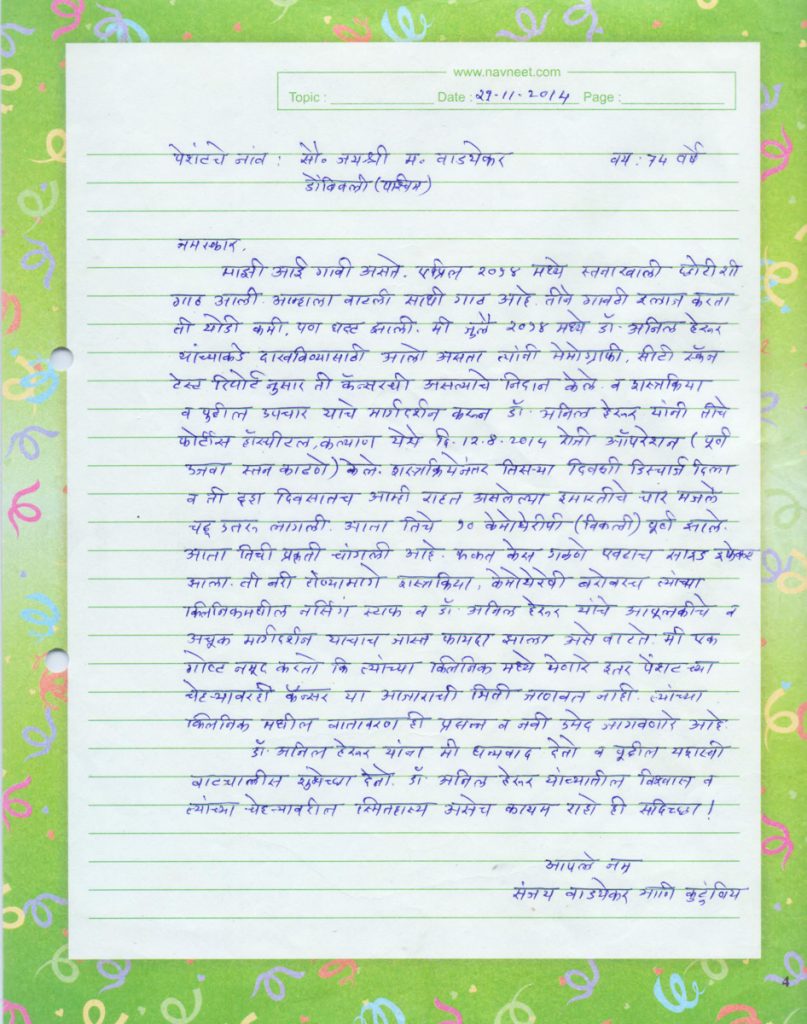 www.navneet.com
Topic : Date : 29-11-2014 Page :
पेशंटचे नांव : सौ. जयश्री म. वाडयेकर वय : 74 वर्षे
डोंबिवली (पश्चिम)
नमस्कार,
माझी आई गावी असते. एप्रिल २०१४ मध्ये स्तनाखाली छोटीशी
गाठ आली. आम्हाला वाटली साधी गाठ आहे. तीने गावठी इलाज करता
ती थोडी कमी, पण घट्ट झाली. मी जुलै २०१४ मध्ये डॉ. अनिल हेरूर
यांच्याकडे दाखविण्यासाठी आलो असता त्यांनी मेमोग्राफी, सीटी स्कॅन
टेस्ट रिपोर्टनुसार ती कॅन्सरची असल्याचे निदान केले. व शस्त्रक्रिया
व पुढील उपचार याचे मार्गदर्शन करून डॉ. अनिल हेरूर यांनी तीचे
फोर्टीस हॉस्पीटल, कल्याण येथे दि. 12.8.2014 रोजी ऑपरेशन ( पूर्ण
उजवा स्तन काढणे) केले. शस्त्रक्रियेनंतर तिसऱ्या दिवशी डिस्चार्ज दिला
व ती दिवसातच आम्ही राहत असलेल्या इमारतीचे चार मजले
चढू उतरू लागली. आता तिचे १० केमोथेरीपी (विकली) पूर्ण झाले.
आता तिची प्रकृती चांगली आहे. फक्त केस गळणे एवढाच साइड इफेक्ट
झाला. ती बरी होण्यामागे शस्त्रक्रिया, केमोथेरेपी बरोबरच त्यांच्या
क्लिनिकमधील नर्सिंग स्टाफ व डॉ. अनिल हेरूर यांचे आपुलकीचे व
अचूक मार्गदर्शन याचाच जास्त फायदा झाला असे वाटते. मी एक
गोष्ट नमूद करतो कि त्यांच्या क्लिनिक मध्ये येणारे इतर पेशंटच्या
चेहऱ्यावरही कॅन्सर या आजाराची भिती जाणवत नाही. त्यांच्या
क्लिनिक मधील वातावरण ही प्रसन्न व नवी उमेद जागवणारे आहे.
डॉ. अनिल हेरूर यांना मी धन्यवाद देतो व पूढील यशस्वी
वाटचालीस शुभेच्छा देतो. डॉ. अनिल हेरूर यांच्यातील विश्वास व
त्यांच्या चेहऱ्यावरील स्मितहास्य असेच कायम राहो ही सदिच्छा !
आपले नम्र
संजय वाडयेकर आणि कुटुंबिय
4